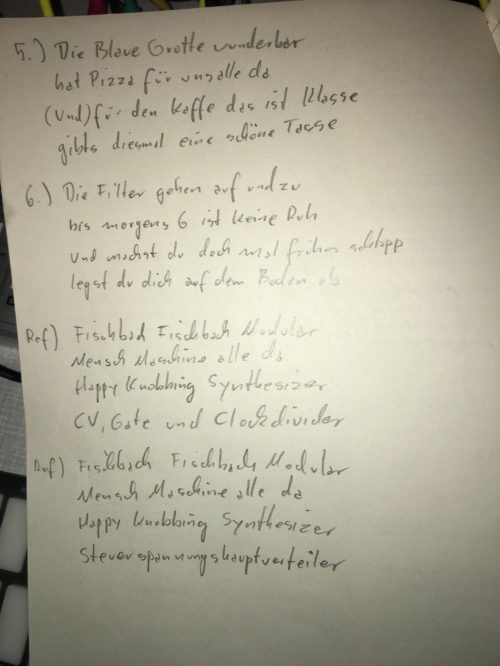 5.) Die Blaue Grotte wunderbar
hat Pizza für uns alle da
(und) für den Kaffe das ist Klasse
gibts diesmal eine schöne Tasse
6.) Die Filter gehen auf und zu
bis morgens 6 ist keine Ruh
und machst du doch mal früher schlapp
legst du dich auf dem Boden ab
Ref) Fischbach Fischbach Modular
Mensch Maschine alle da
Happy Knobbing Synthesizer
CV, Gate und Clockdivider
Ref) Fischbach Fischbach Modular
Mensch Maschine alle da
Happy Knobbing Synthesizer
Steuerspannungshauptverteiler